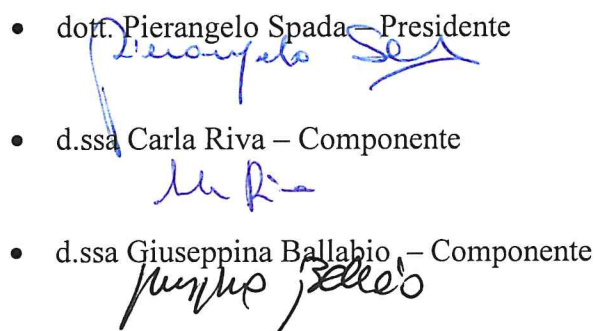 • dott. Pierangelo Spada – Presidente
Pierangelo
• d.ssa Carla Riva – Componente
• d.ssa Giuseppina Ballabio – Componente